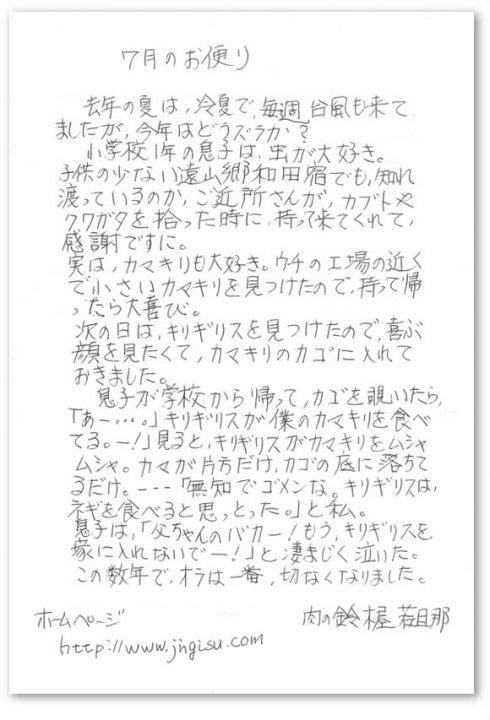 7月のお便り
去年の夏は、冷夏で、毎週台風も来て
ましたが、今年はどうズラか？
小学校1年の息子は、虫が大好き。
子供の少ない遠山郷和田宿でも、知れ
渡っているのか、ご近所さんが、カブトや
クワガタを拾った時に、持って来てくれて、
感謝ですに。
実は、カマキリも大好き。ウチの工場の近く
で小さいカマキリを見つけたので、持って帰
ったら大喜び。
次の日は、キリギリスを見つけたので、喜ぶ
顔を見たくて、カマキリのカゴに入れて
おきました。
息子が学校から帰って、カゴを覗いたら、
「あー・・・。」キリギリスが僕のカマキリを食べ
てる。ー！」見ると、キリギリスがカマキリをムシャ
ムシャ。カマが片方だけ、カゴの底に落ちて
るだけ。---「無知でゴメンな。キリギリスは、
ネギを食べると思っとった。」と私。
息子は、「父ちゃんのバカー！もう、キリギリスを
家に入れないでー！」と凄まじく泣いた。
この数年で、オラは一番、切なくなりました。
ホームページ
肉の鈴木屋 若旦那
http://www.jingisu.com